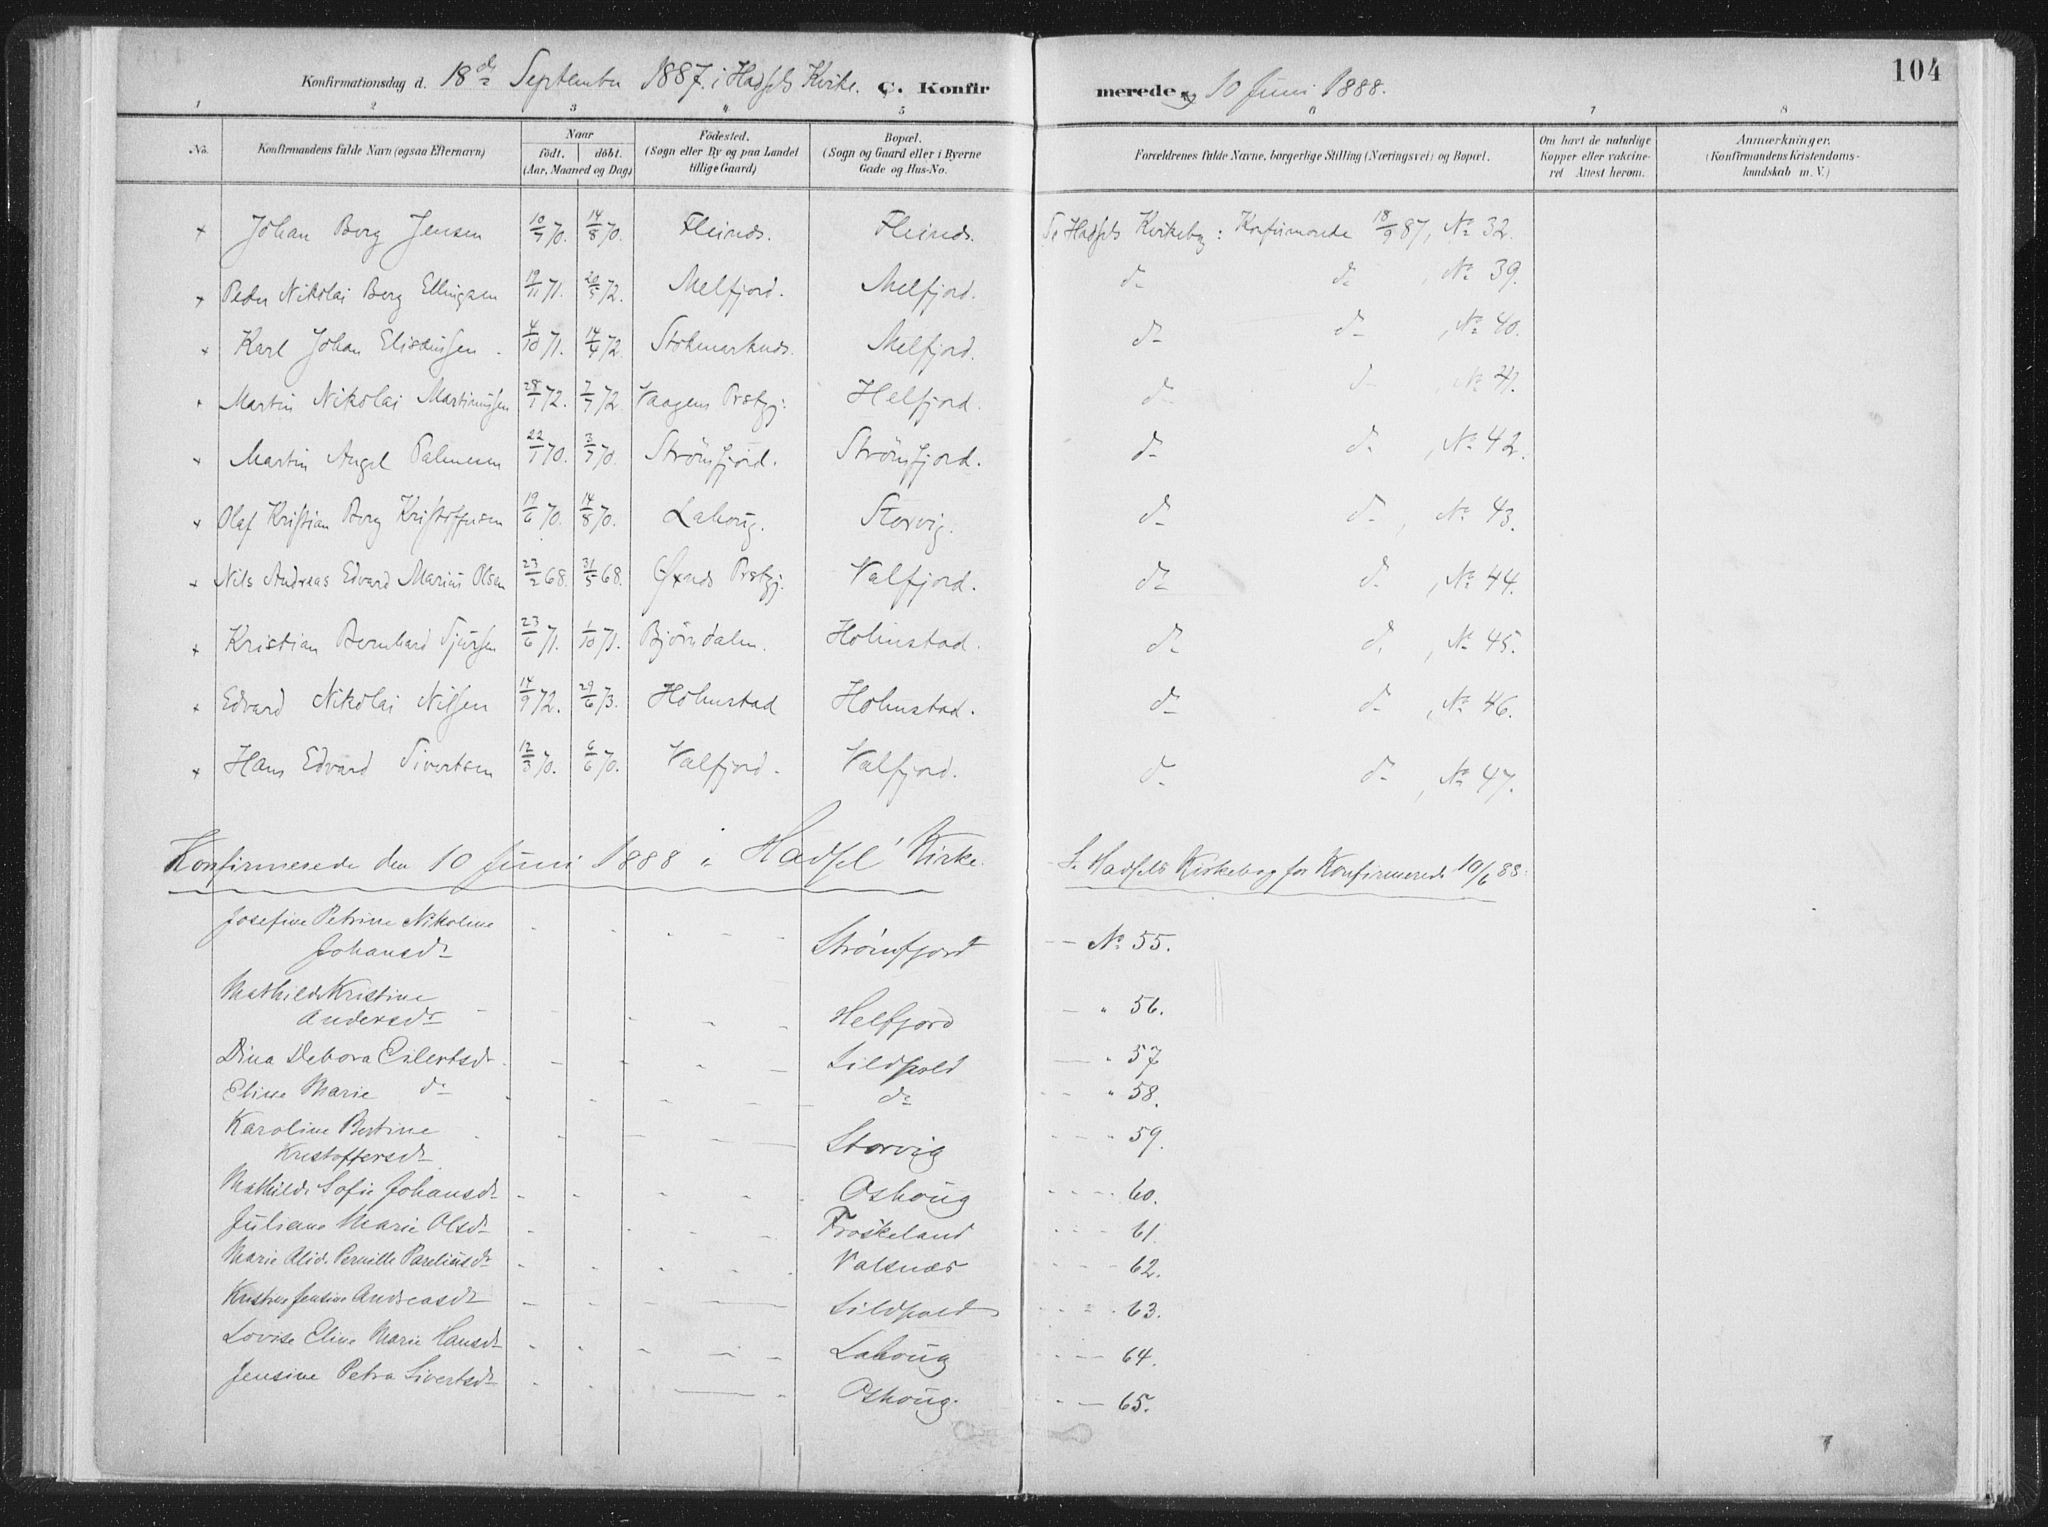 104
Konfirmationsdag d. 18de September 1887. i Hadsels Kirke. C. Konfirmerede og 10 Juni 1888.
1 2 3 4 5 6 7 8
No. Konfirmandens fulde Navn (ogsaa Efternavn) Naar født. døbt. (Aar, Maaned og Dag) Fødested. (Sogn eller By og paa Landet tillige Gaard) Bopæl. (Sogn og Gaard eller i Byerne Gade og Hus-No. Forældrenes fulde Navne, borgerlige Stilling (Næringsvei) og Bopæl. Om havt de naturlige Kopper eller vakcineret Attest herom. Anmærkninger. (Konfirmandens Kristendomskundskab m. V.)
+ Johan Berg Jensen 10/7 70. 14/8 70. Fleinds. Fleinds. Se Hadsels Kirkebog: Konfirmerede 18/9 87, No 32.
+ Peder Nikolai Berg Ellingsen 19/11 71. 20/5 72. Melfjord. Melfjord. do do, No 39.
+ Karl Johan Elisæusen. 4/10 71. 14/4 72. Stokmarknds. Melfjord. do do, No 40.
+ Martin Nikolai Martinussen 28/1 72. 7/7 72. Vaagens Prstgj: Helfjord. do do No 41.
+ Martin Angel Palmesen 22/1 70. 3/7 70. Strønsfjord. Strønsfjord. do do, No 42.
+ Olaf Kristian Berg Kristoffersen 19/6 70. 14/8 70. Lahoug. Storvig. do do, No 43.
+ Nils Andreas Edvard Marius Olsen 23/2 68. 31/5 68. Øxnds Prstgj: Valfjord. do do, No 44.
+ Kristian Bernhard Sjursen 23/6 71. 1/10 71. Bjørndalen. Holmstad. do do, No 45.
+ Edvard Nikolai Nilsen 14/9 72. 29/6 73. Holmstad Holmstad. do do, No 46.
+ Hans Edvard Sivertsen 12/3 70. 6/6 70. Valfjord. Valfjord. do do, No 47.
Konfirmerede den 10 Juni 1888 i Hadsel Kirke. S. Hadsels Kirkebog for Konfirmerede 10/6 88:
Josefine Petrine Nikoline
Johansdr Strønsfjord — No 55.
Mathilde Kristine
Andersdr Helfjord — " 56.
Dina Debora Eilertsdr Sildpold — " 57
Eline Marie do do — " 58.
Karoline Bertine
Kristoffersdr Storvig — " 59.
Mathilde Sofie Johansdr Oshoug — 60.
Juliane Marie Olsdr Froskeland — 61.
Marie Alid. Pernille Pareliusdr Valsnæs — 62.
Kristine Jensine Andreasdr Sildpold — 63.
Lovise Eline Marie Hansdr Lahoug — 64.
Jensine Petra Sivertsdr Oshoug. — 65.